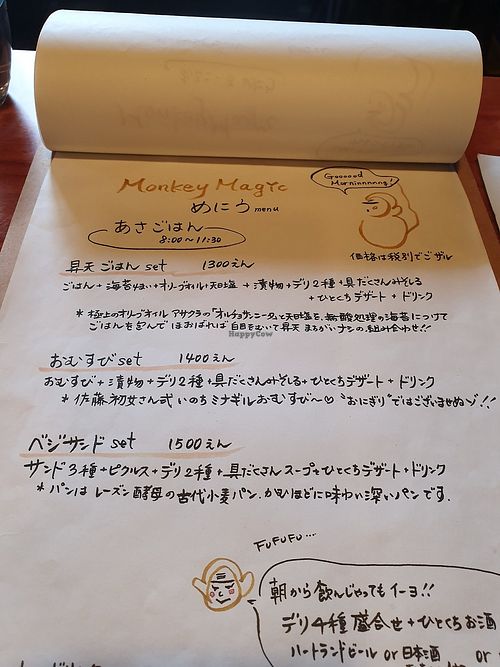 Goooood
Morninnnnng!
Monkey Magic
めにう menu
あさごはん
8:00〜11:30
価格は税別でゴザル
昇天ごはん set 1300えん
ごはん + 海苔 + オリーブオイル + 天日塩 + 漬物 + デリ2種 + 具だくさんみそしる
+ ひとくちデザート + ドリンク
* 極上のオリーブオイル アサクラの「オルチョサンニータ」と天日塩を、無酸処理の海苔につけて
ごはんを包んでほおばれば 白目をむいて昇天 まちがいナシの組み合わせ!!
HappyCow
おむすび set 1400えん
おむすび + 漬物 + デリ2種 + 具だくさんみそしる + ひとくちデザート + ドリンク
* 佐藤初女さん式 いのちミナギル おむすび〜♡ "おにぎり"ではございませぬゾ!!
ベジサンド set 1500えん
サンド3種 + ピクルス + デリ2種 + 具だくさんスープ + ひとくちデザート + ドリンク
* パンは レーズン酵母の古代小麦パン. かむほどに味わい深いパンです.
FUFUFU...
朝から飲んじゃってもイーヨ!!
デリ4種盛合せ + ひとくちお酒
ハートランドビール or 日本酒 or